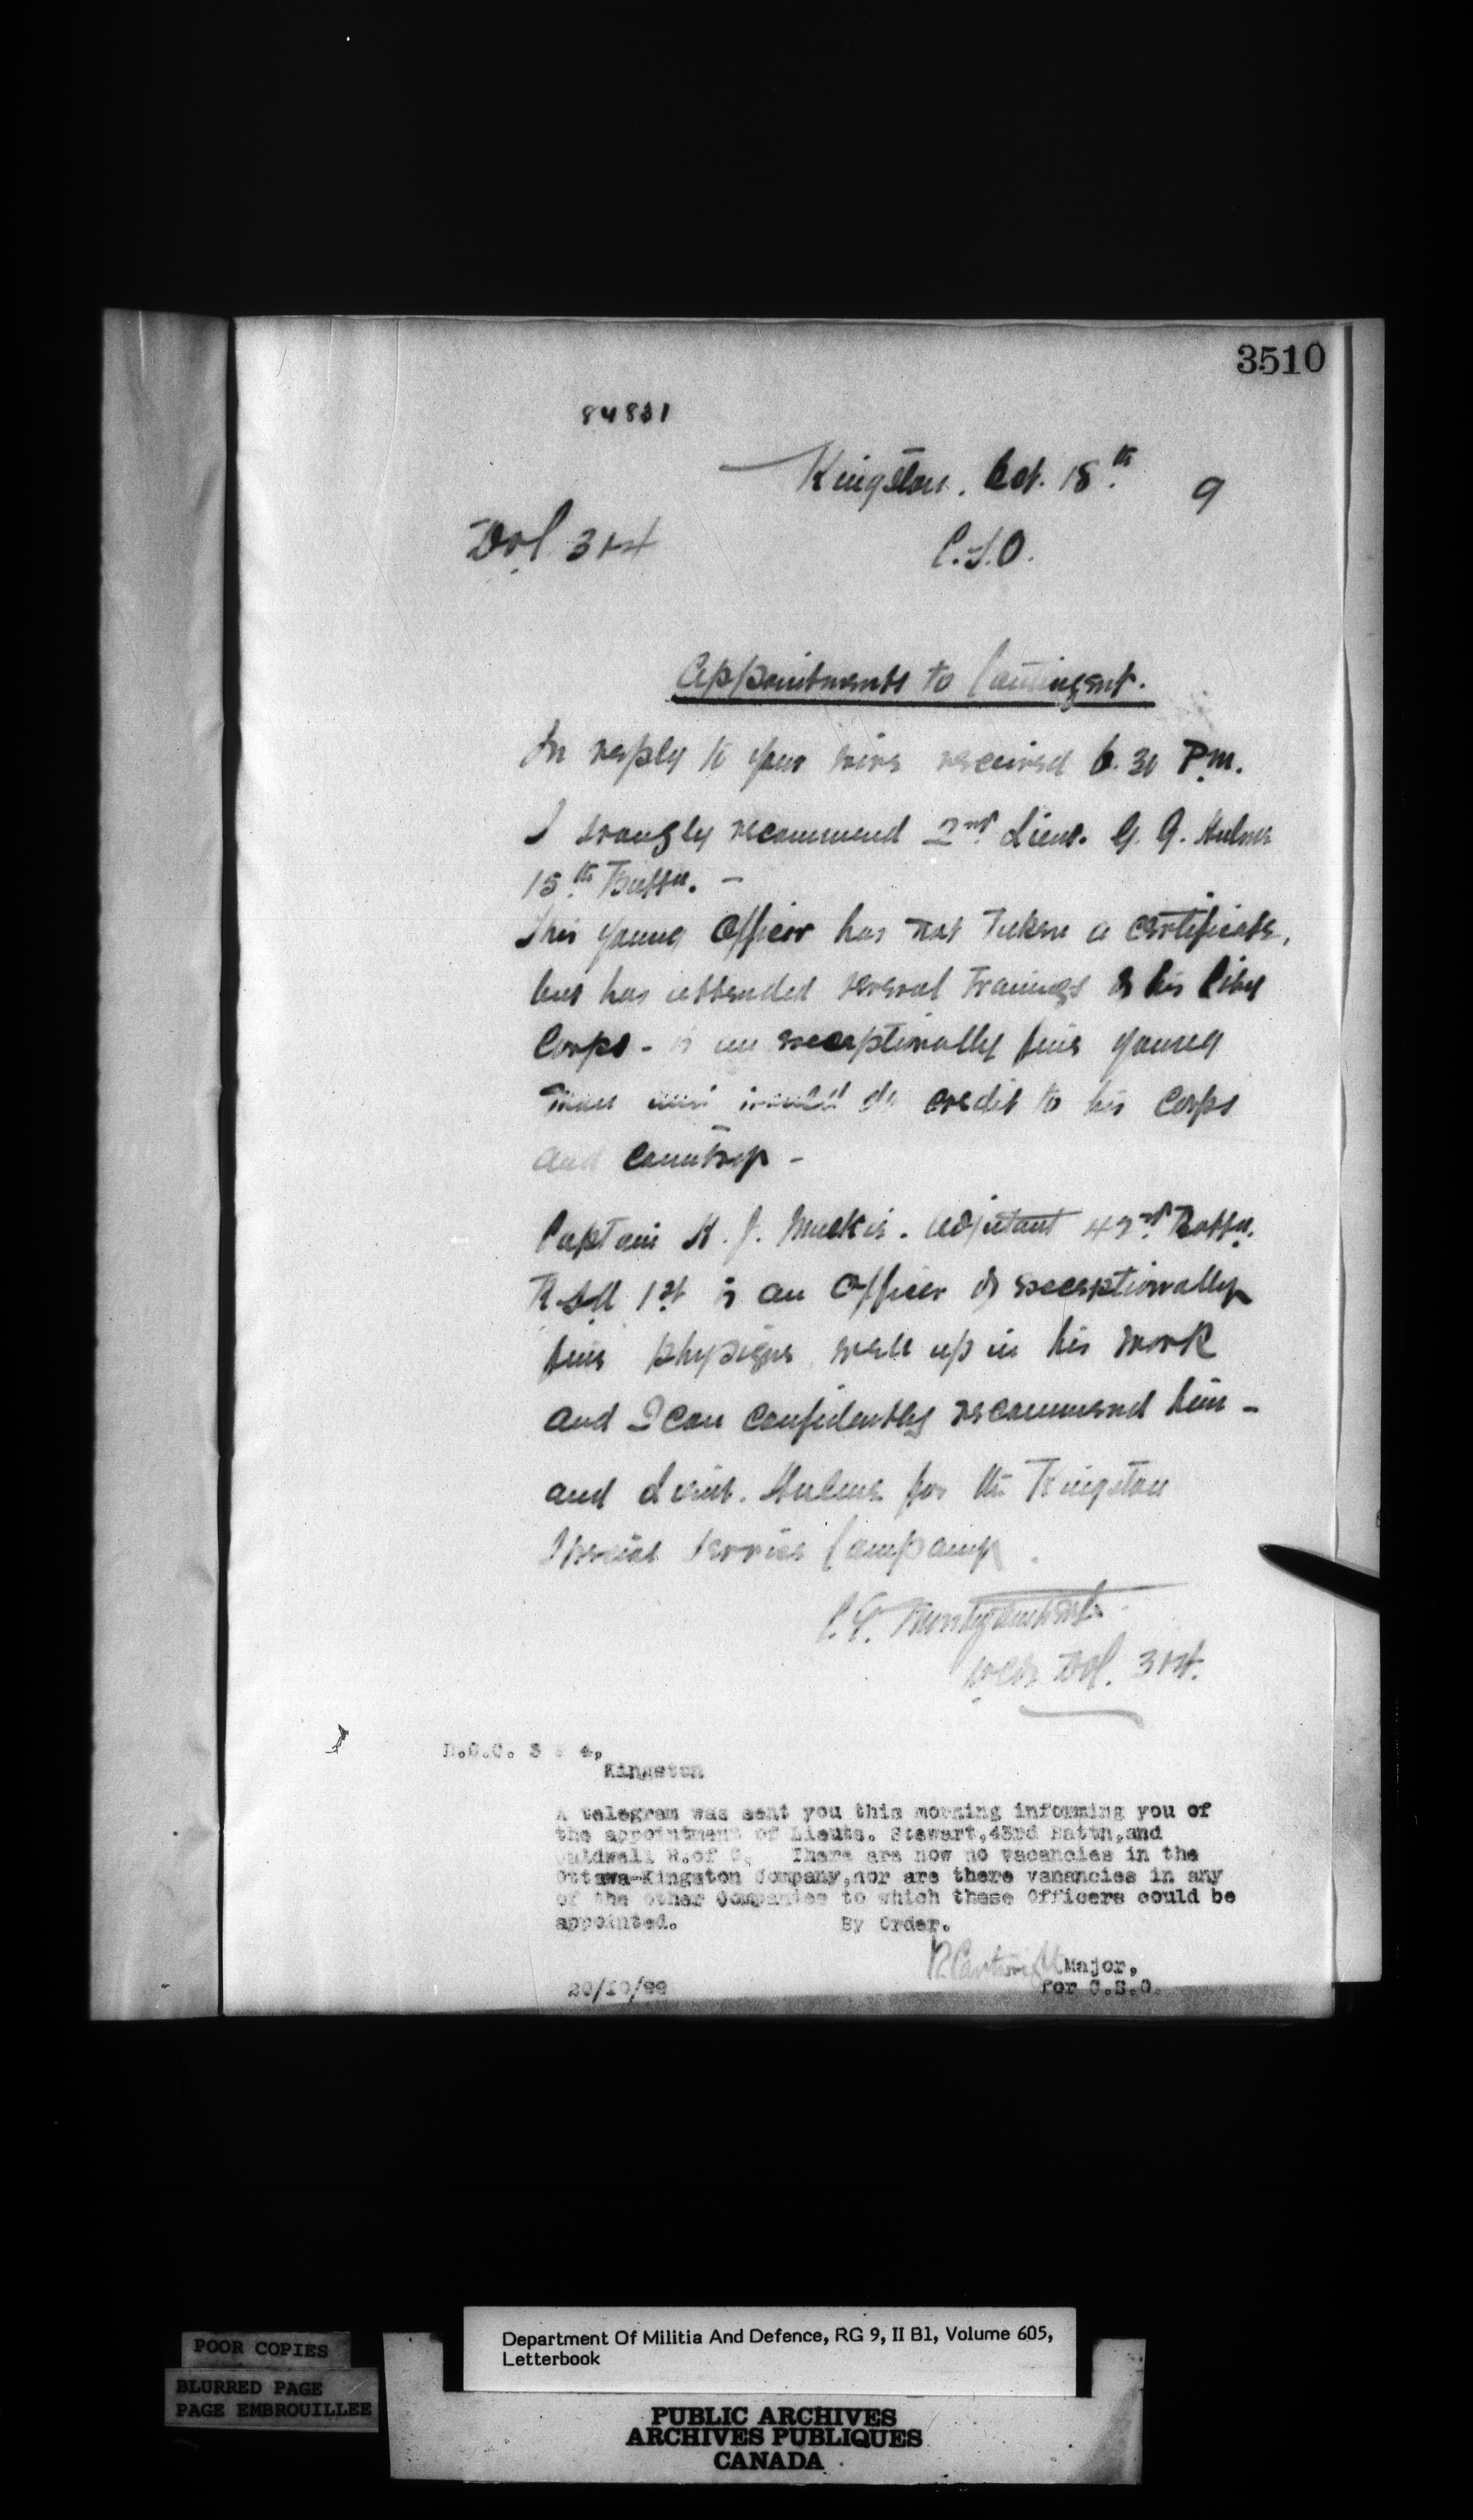 3510
84831
Kingston. Oct. 18th 9
D.O.C. 3 & 4
C.S.O.
Appointments to Contingent.
In reply to your wire received 6.30 P.m.
I strongly recommend 2nd Lieut. G. G. Hulme
15th Battn. -
This young Officer has not taken a certificate,
but has attended several trainings of his City
Corps - is an exceptionally fine young
man and would do credit to his Corps
and Country -
Captain K. J. Adjutant 42nd Battn.
1st is an Officer of exceptionally
fine physique well up in his work
and I can confidently recommend him -
and Lieut. Hulme for the Kingston
Special Service Company.
D.O.C. 3 & 4,
Kingston
A telegram was sent you this morning informing you of
the appointment of Lieuts. Stewart,43rd Battn,and
Caldwell R.of O. There are now no vacancies in the
Ottawa-Kingston Company,nor are there vanancies in any
of the other Companies to which these Officers could be
appointed. By Order.
R Cartwright Major,
for C.S.O.
20/10/99
Department Of Militia And Defence, RG 9, II B1, Volume 605,
Letterbook
POOR COPIES
BLURRED PAGE
PAGE EMBROUILLEE
PUBLIC ARCHIVES
ARCHIVES PUBLIQUES
CANADA